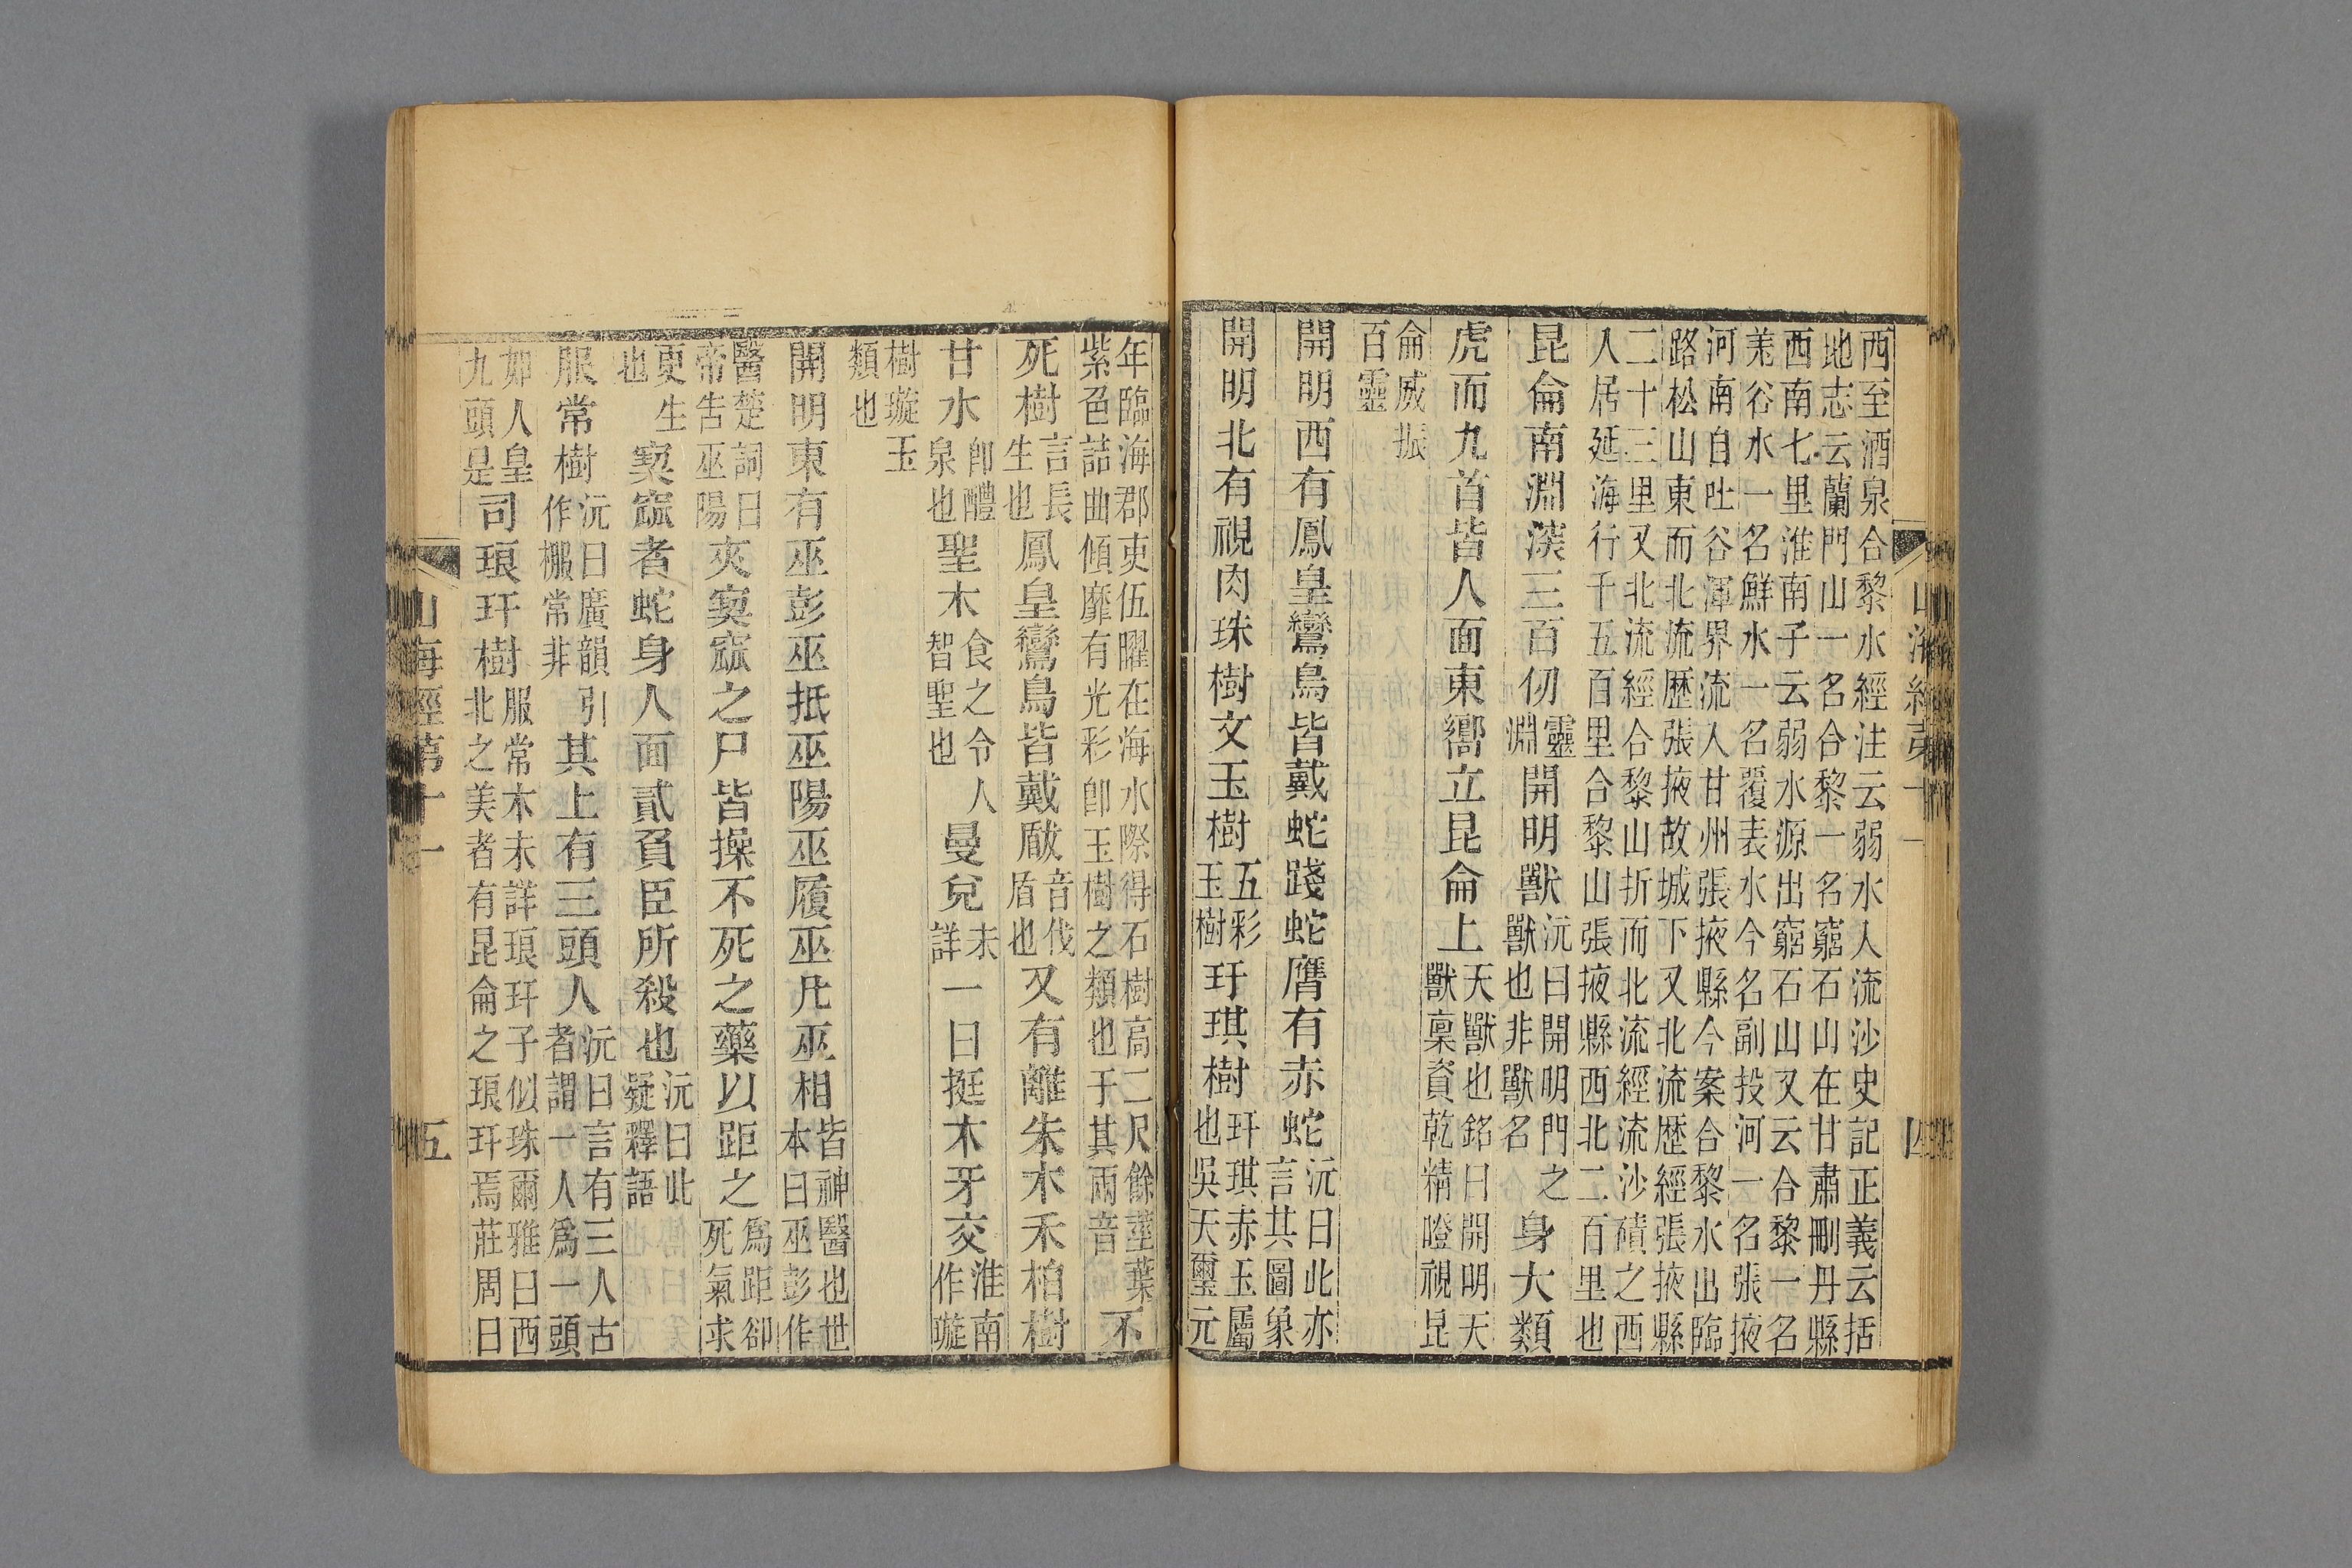 山海經第十一 四
西至酒泉合黎水經注云弱水人流沙史記正義云括
地志云蘭門山一名合黎一名窮石山在甘肅刪丹縣
西南七里淮南子云弱水源出窮石山又云合黎一名
羌谷水一名鮮水一名覆表水今名副投河一名張掖
河南自吐谷渾界流人甘州張掖縣今案合黎水出臨
路松山東而北流歷張掖故城下又北流歷經張掖縣
二十三里又北流經合黎山折而北流經流沙磧之西
人居延海行千五百里合黎山張掖縣西北二百里也
昆侖南淵深三百仞靈淵開明獸沅曰開明門之獸也非獸名身大類
虎而九首皆人面東嚮立昆侖上天獸也銘曰開明天獸稟資乾精瞪視昆
侖威振百靈
開明西有鳳皇鸞鳥皆戴蛇踐蛇膺有赤蛇沅曰此亦言其圖象
開明北有視肉珠樹文玉樹五彩玉樹玗琪樹玗琪赤玉屬也吳天璽元
年臨海郡吏伍曜在海水際得石樹高二尺餘莖葉紫色詰曲傾靡有光彩卽玉樹之類也于其兩音不
死樹言長生也鳳皇鸞鳥皆戴瞂音伐盾也又有離朱木禾柏樹
甘水卽醴泉也聖木食之令人智聖也曼兌未詳一曰挺木牙交淮南作璇
樹璇玉類也
開明東有巫彭巫抵巫陽巫履巫凡巫相皆神醫也世本曰巫彭作
醫楚詞曰帝告巫陽夾窫窳之尸皆操不死之藥以距之爲距卻死氣求
更生也窫窳者蛇身人面貳負臣所殺也沅曰此疑釋語
服常樹沅曰廣韻引作楖常非其上有三頭人沅曰言有三人古者謂一人爲一頭
如人皇九頭是司琅玕樹服常木未詳琅玕子似珠爾雅曰西北之美者有昆侖之琅玕焉莊周曰
山海經第十一 五